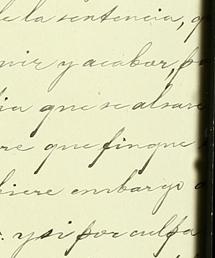 de la sentencia, q
nir y acabar, p
dia que se alsare
re que finque
biere embargo
: y si por culpa